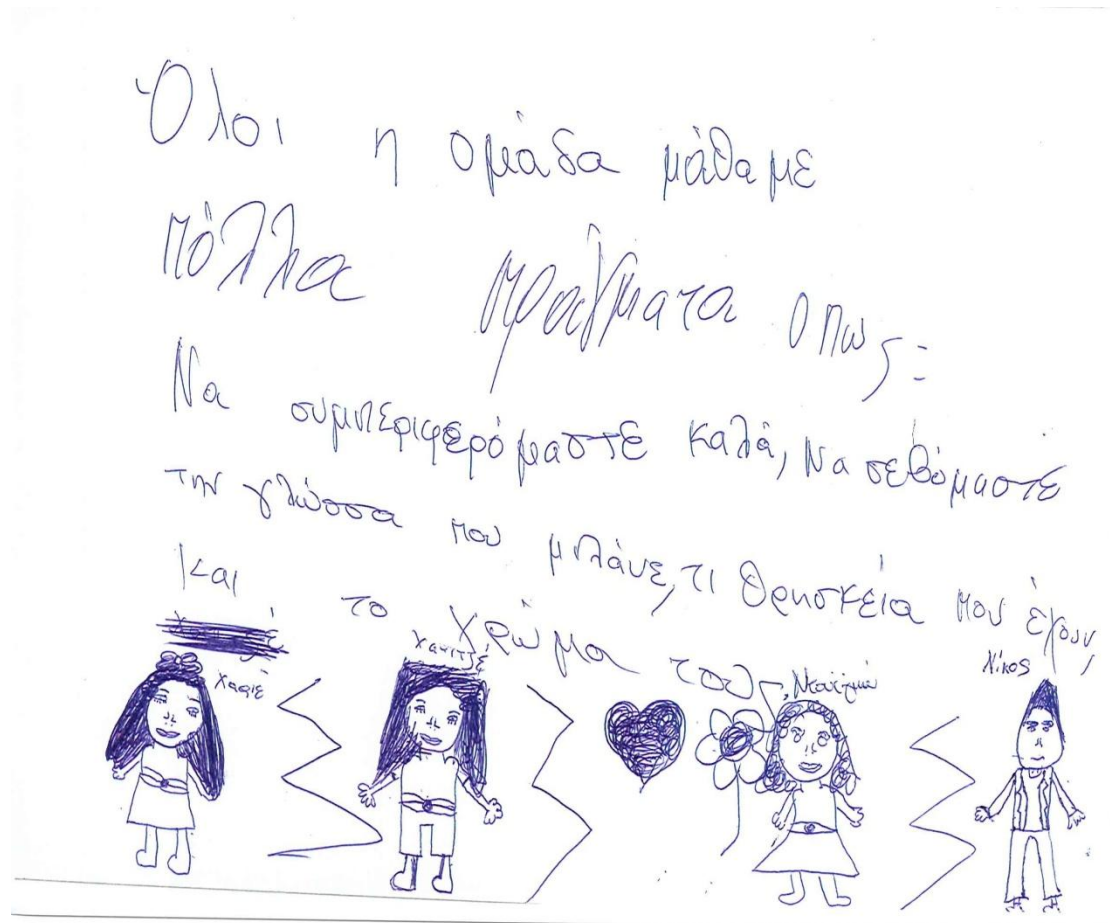 Όλοι η ομάδα μάθαμε
πόλλα πράγματα οπως:
Να συμπεριφερόμαστε καλά, να σεβόμαστε
την γλώσσα που μιλάνε, τι θρησκεία που έχουν,
και το χρώμα τους,
Νίκος